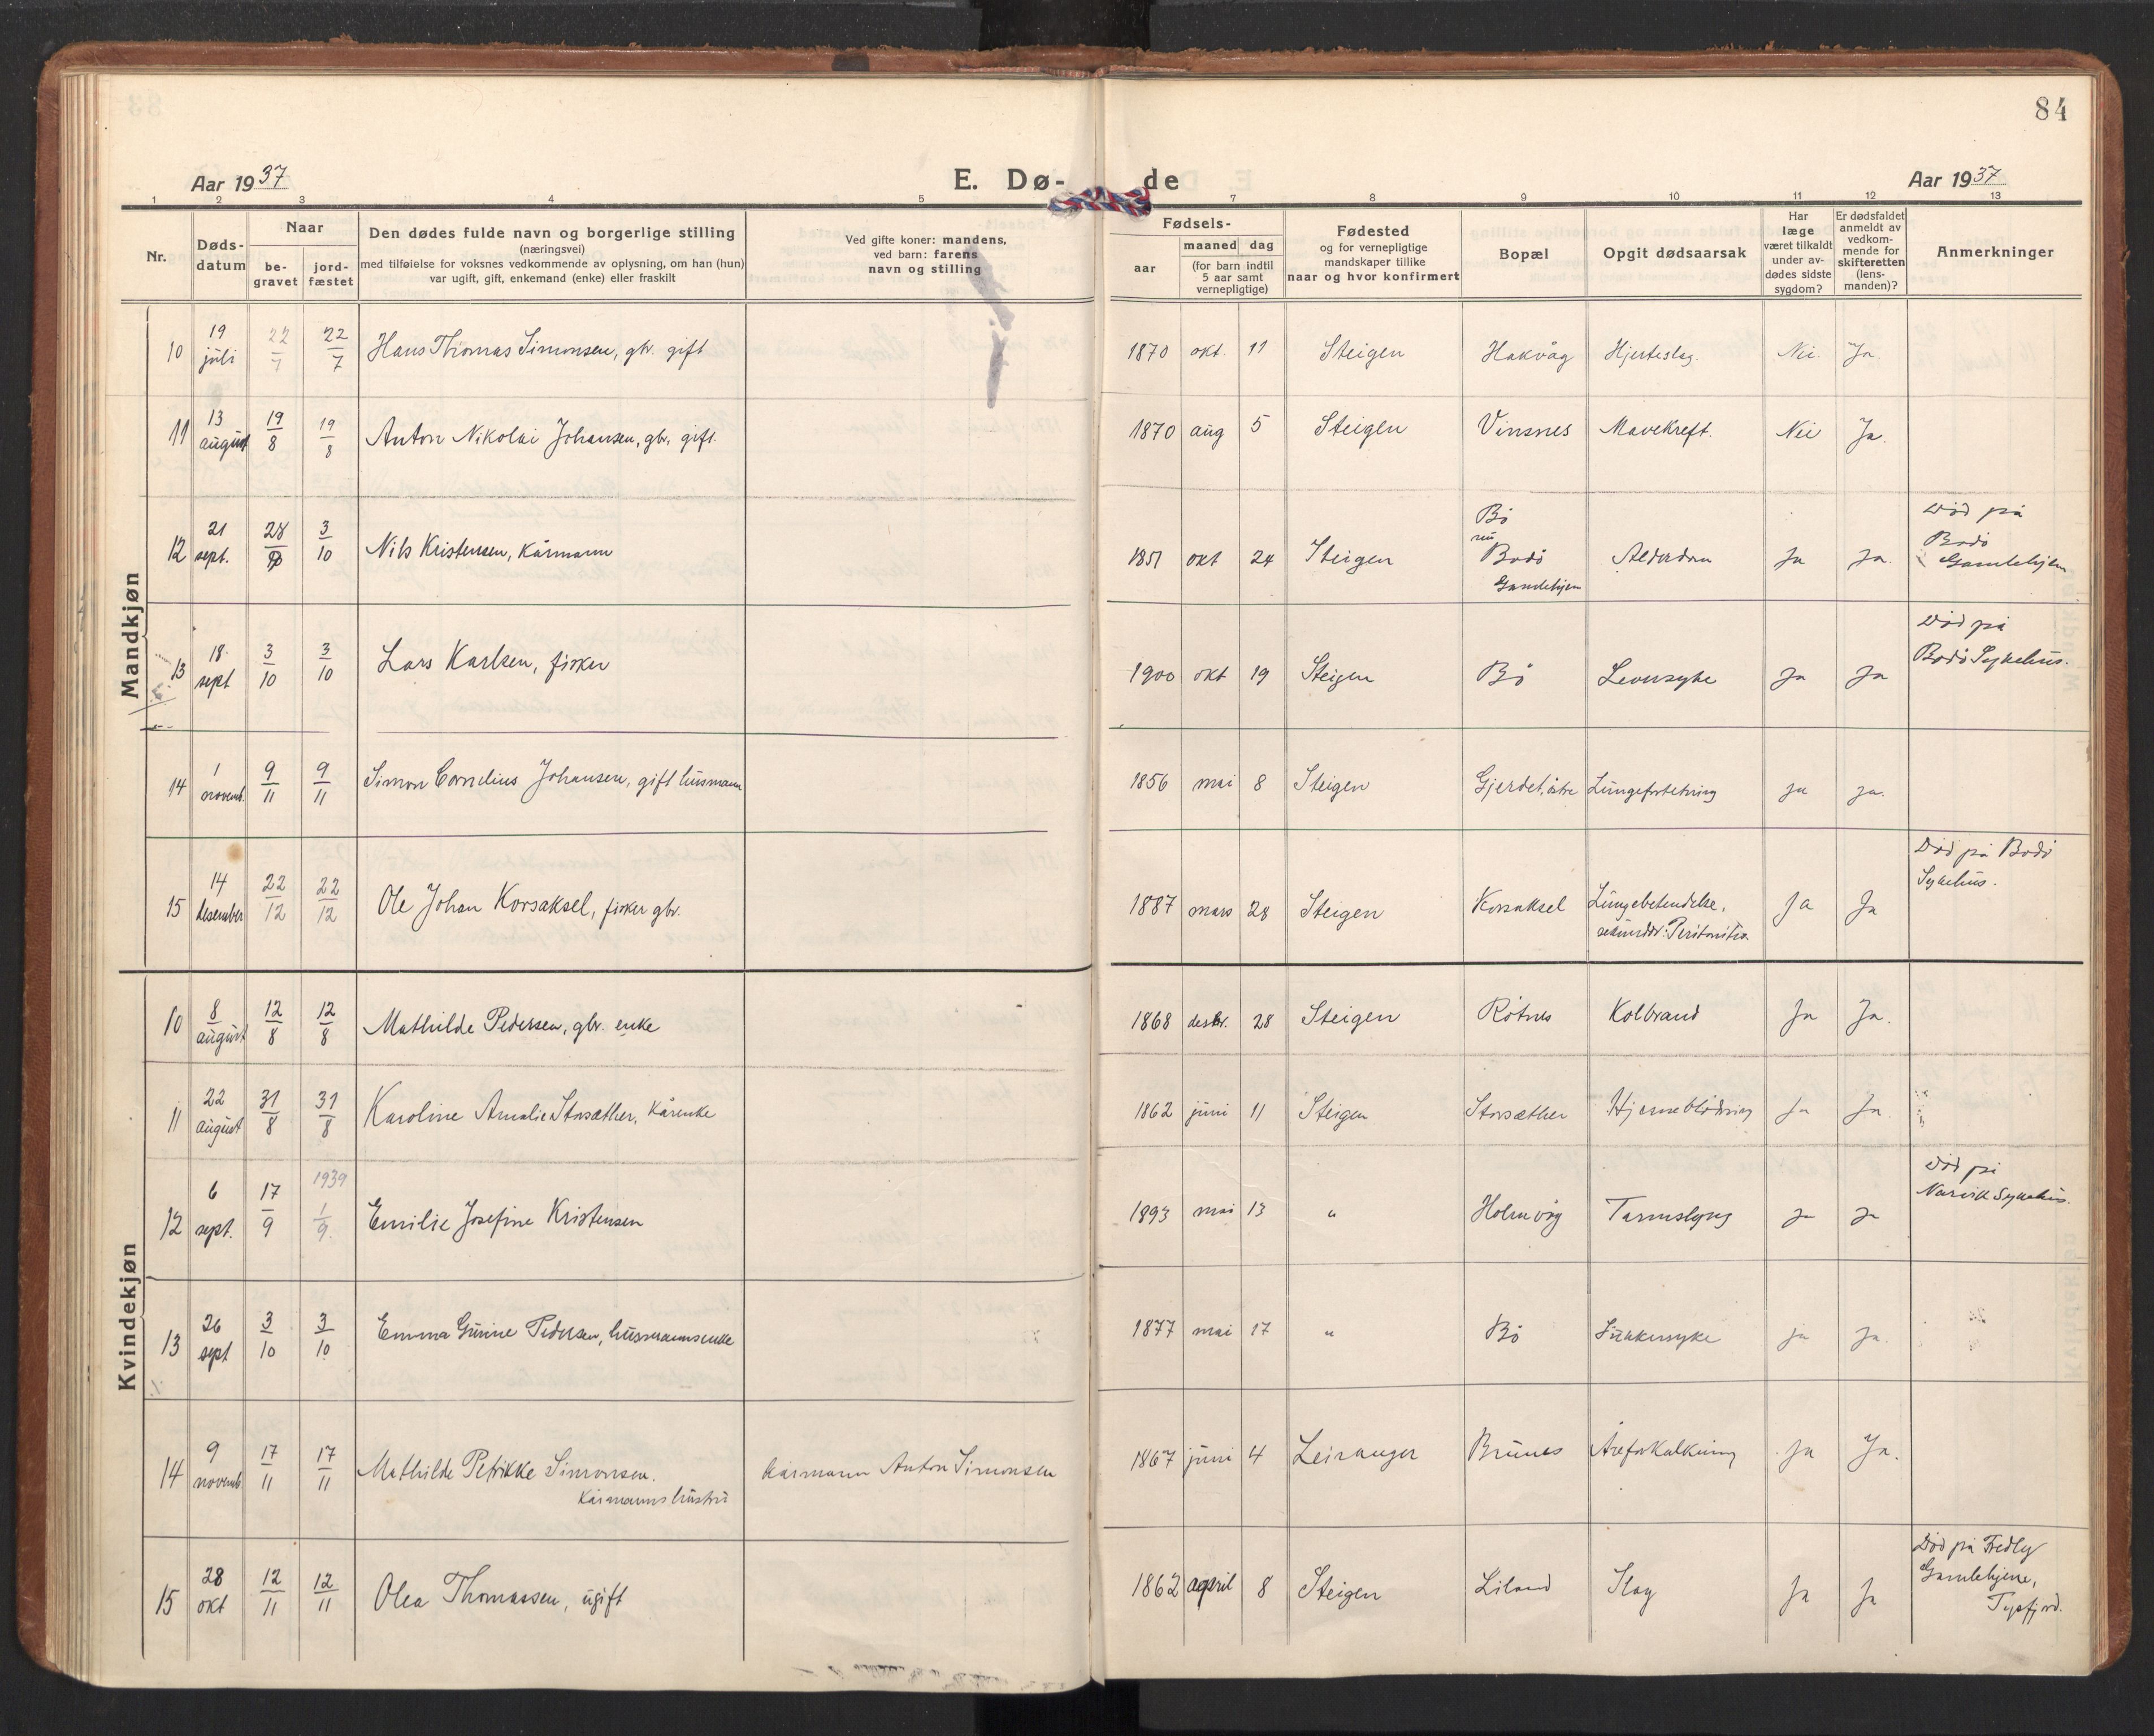 84
Aar 1937
E. Dø-
de
Aar 1937
1 2 3 4 5 7 8 9 10 11 12 13
Nr.
Døds-
datum
Naar
be-
gravet
jord-
fæstet
Den dødes fulde navn og borgerlige stilling
(næringsvei)
med tilføielse for voksnes vedkommende av oplysning, om han (hun)
var ugift, gift, enkemand (enke) eller fraskilt
Ved gifte koner: mandens,
ved barn: farens
navn og stilling
Fødsels-
aar
maaned dag
(for barn indtil
5 aar samt
vernepligtige)
Fødested
og for vernepligtige
mandskaper tillike
naar og hvor konfirmert
Bopæl
Opgit dødsaarsak
Har
læge
været tilkaldt
under av-
dødes sidste
sygdom?
Er dødsfaldet
anmeldt av
vedkom-
mende for
skifteretten
(lens-
manden)?
Anmerkninger
Mandkjøn
10 19 juli 22/7 22/7 Hans Thomas Simonsen, gbr. gift 1870 okt. 11 Steigen Hakvåg Hjerteslag. Nei. Ja.
11 13 august 19/8 19/8 Anton Nikolai Johansen, gbr. gift. 1870 aug 5 Steigen Vinsnes Mavekreft. Nei Ja.
12 21 sept. 28/9 3/10 Nils Kristensen, Kårmann 1851 okt 24 Steigen Bø
nu Bodø
Gamlehjem Alderdom Ja Ja. Död på
Bodø
Gamlehjem
13 18. sept 3/10 3/10 Lars Karlsen, fisker 1900 okt 19 Steigen Bø Leversyke Ja Ja Död på
Bodø Sykehus.
14 1 novemb. 9/11 9/11 Simon Cornelius Johansen, gift husmann 1856 mai 8 Steigen Gjerdet, østre Lungefortetning Ja Ja.
15 14 desember 22/12 22/12 Ole Johan Korsaksel, fisker gbr. 1887 mars 28 Steigen Korsaksel Lungebetendelse,
sekundær: Peritonitis Ja Ja Död på Bodø
Sykehus.
Kvindekjøn
10 8 august 12/8 12/8 Mathilde Pedersen, gbr. enke 1868 desbr. 28 Steigen Røtnes Kolbrand Ja Ja.
11 22 august 31/8 31/8 Karoline Amalie Storsæther, Kårenke 1862 juni 11 Steigen Storsæther Hjerneblödning Ja Ja.
12 6 sept. 17/9 1939 1/9. Emilie Josefine Kristensen 1893 mai 13 " Holmvåg Tarmslyng Ja Ja Död på
Narvik Sykehus.
13 26 sept 3/10 3/10 Emma Gurine Pedersen, husmannsenke 1877 mai 17 " Bø Sukkersyke Ja Ja.
14 9 novemb 17/11 17/11 Mathilde Petrikke Simonsen.
Kårmanns hustru Kårmann Anton Simonsen 1867 juni 4 Leiranger Brunes Åreforkalkning Ja Ja.
15 28 okt 12/11 12/11 Olea Thomassen, ugift 1862 april 8 Steigen Liland Slag Ja Ja Död på Fredly
Gamlehjem,
Tysfjord.